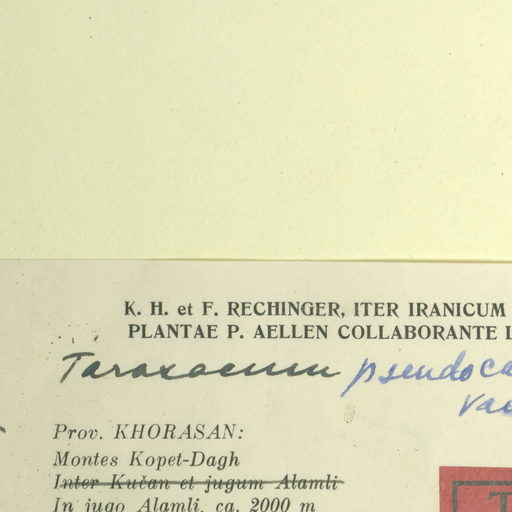 K. H. et F. RECHINGER, ITER IRANICUM
PLANTAE P. AELLEN COLLABORANTE L
Taraxacum pseudoca
va
Prov. KHORASAN:
Montes Kopet-Dagh
Inter Kučan et jugum Alamli
In jugo Alamli, ca. 2000 m
T